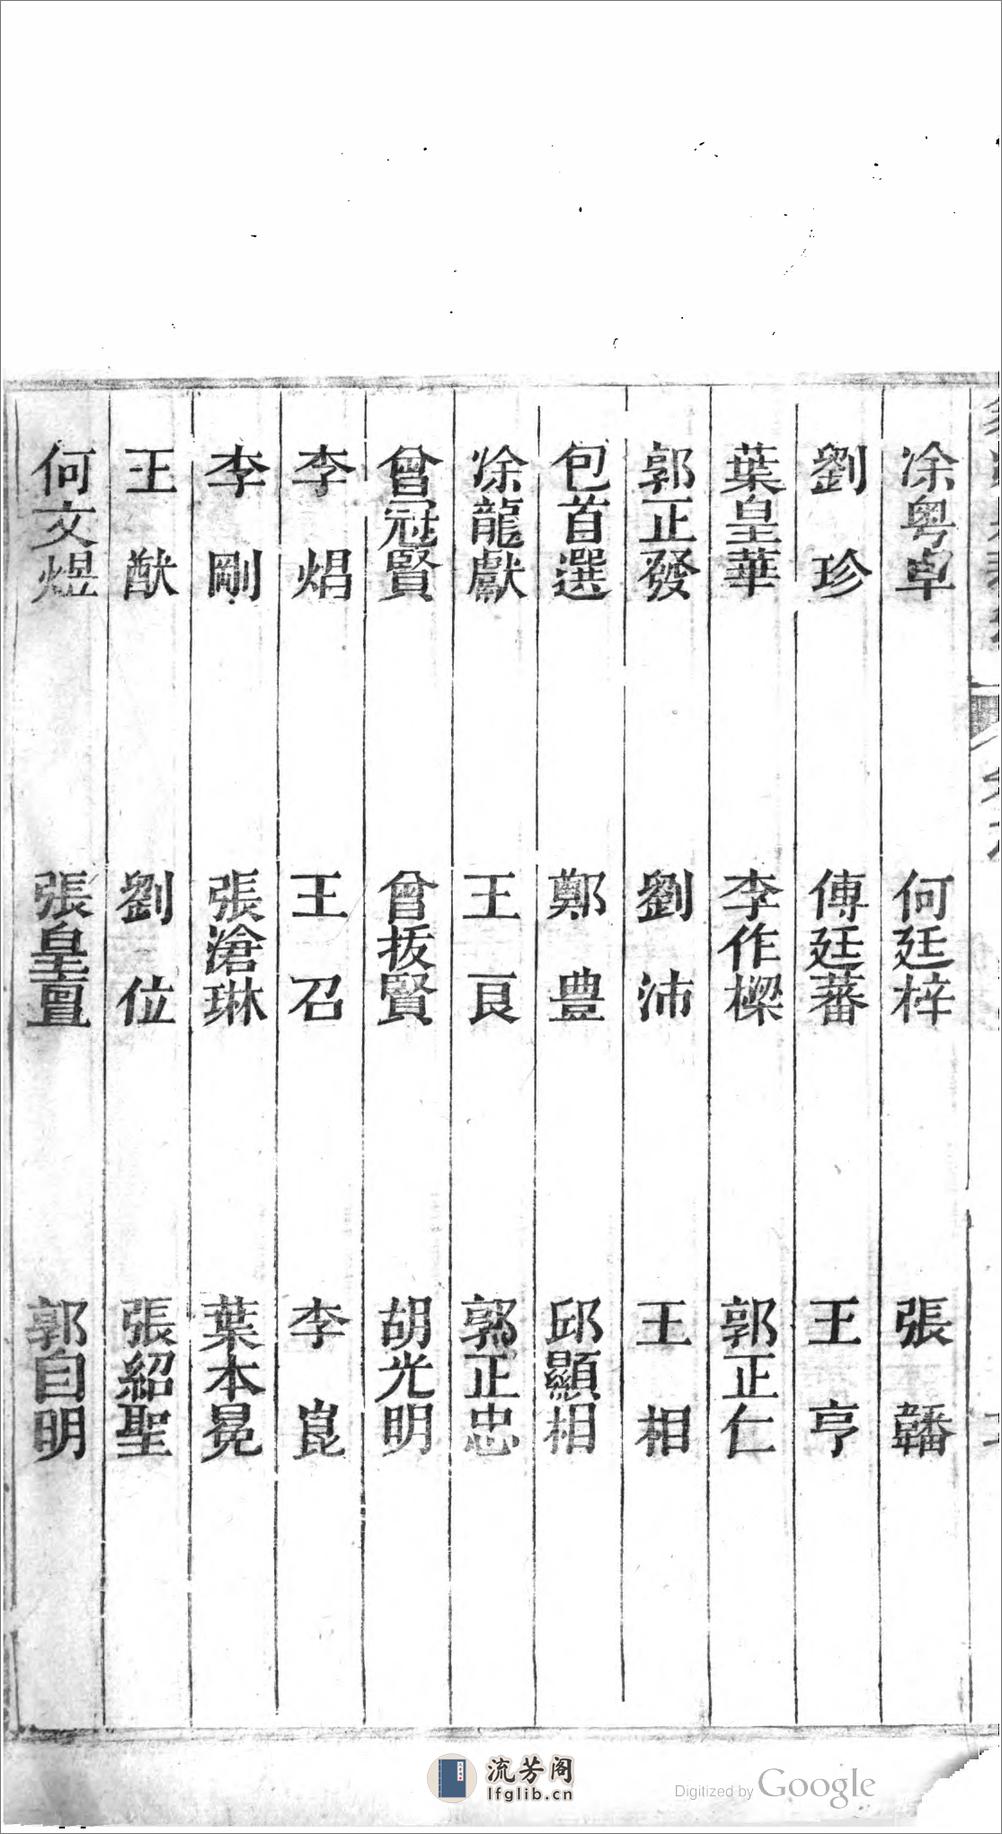 凃粤卓　何廷梓　張　𩏩
劉　珍　傅廷蕃　王　亨
葉皇華　李作樑　郭正仁
郭正發　劉　沛　王　相
包首選　鄭　豊　邱顯相
凃龍獻　王　良　郭正忠
曾冠賢　曾拔賢　胡光明
李　焻　王　召　李　崑
李　剛　張滄琳　葉本晃
王　猷　劉　位　張紹聖
何文煜　張皇亶　郭自明
流芳阁
lfglib.cn
Digitized by Google